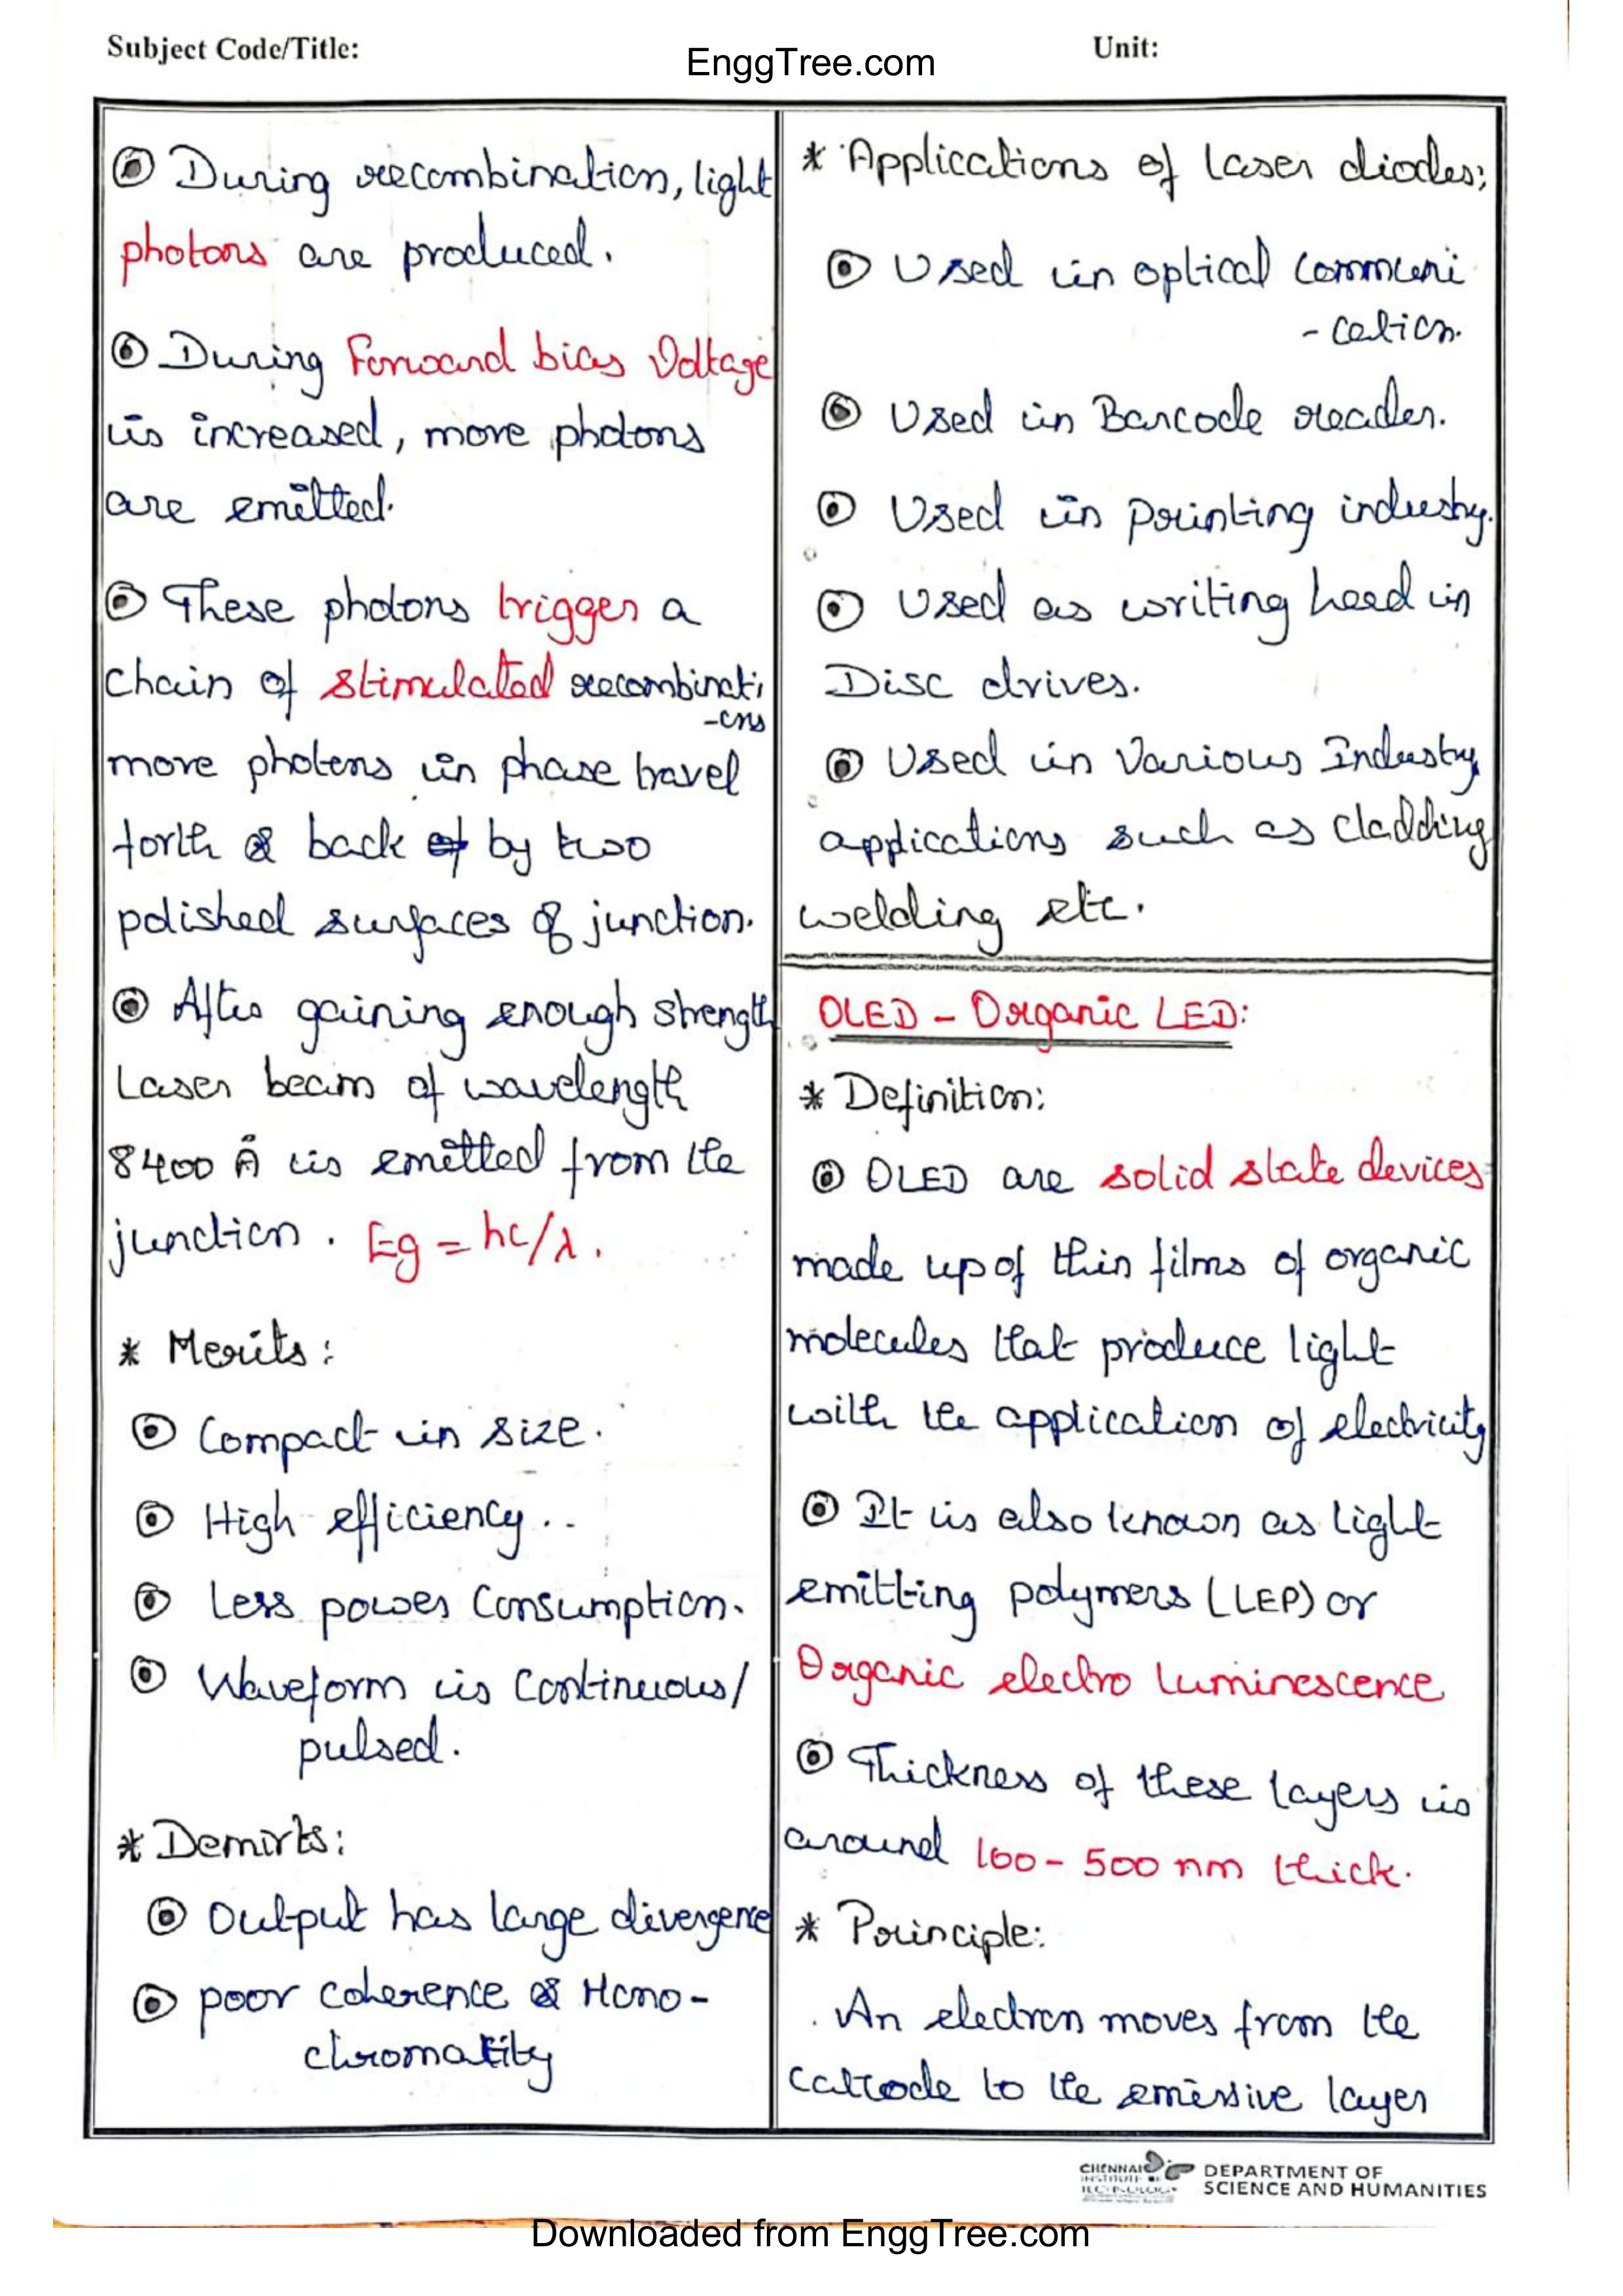 Subject Code/Title:
EnggTree.com
Unit:
During recombination, light
photons are produced.
During Forward bias Voltage
is increased, more photons
are emitted.
These photons trigger a
chain of stimulated recombinati
-ons
more photons in phase travel
forth & back of by two
polished surfaces of junction.
After gaining enough strength
Laser beam of wavelength
8400 Å is emitted from the
junction. Eg = hc/λ.
* Merits:
Compact in size.
High efficiency..
Less power Consumption.
Waveform is Continuous/
pulsed.
* Demirts:
Output has large divergence
poor coherence & Mono-
chromatity
* Applications of laser diodes;
Used in optical communi
-cation.
Used in Barcode reader.
Used in printing industry.
Used as writing head in
Disc drives.
Used in Various Industry
applications such as cladding
welding etc.
OLED - Organic LED:
* Definition:
OLED are solid state devices
made up of thin films of organic
molecules that produce light
with the application of electricity
It is also known as light
emitting polymers (LEP) or
Organic electro luminescence
Thickness of these layers is
around 100 - 500 nm thick.
* Principle:
. An electron moves from the
cathode to the emissive layer
CHENNAI
INSTITUTE OF
TECHNOLOGY
DEPARTMENT OF
SCIENCE AND HUMANITIES
Downloaded from EnggTree.com